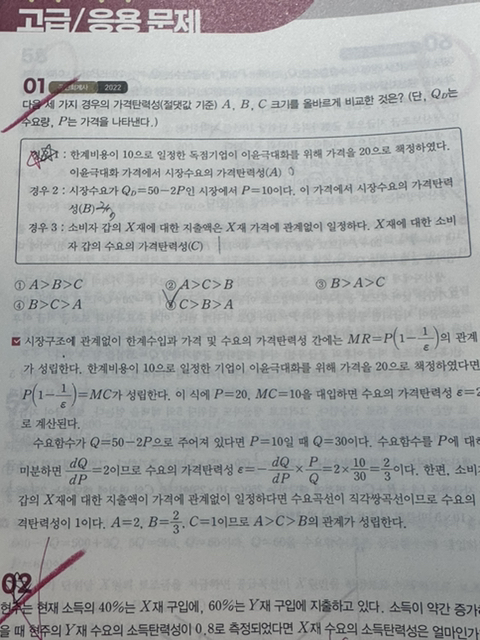 고급/응용 문제
01
2022
다음 세 가지 경우의 가격탄력성(절댓값 기준) A, B, C 크기를 올바르게 비교한 것은? (단, Q_D는
수요량, P는 가격을 나타낸다.)
: 한계비용이 10으로 일정한 독점기업이 이윤극대화를 위해 가격을 20으로 책정하였다.
이윤극대화 가격에서 시장수요의 가격탄력성(A)
경우 2 : 시장수요가 Q_D=50-2P인 시장에서 P=10이다. 이 가격에서 시장수요의 가격탄력
성(B)
경우 3 : 소비자 갑의 X재에 대한 지출액은 X재 가격에 관계없이 일정하다. X재에 대한 소비
자 갑 수요의 가격탄력성(C)
① A>B>C ② A>C>B ③ B>A>C
④ B>C>A C>B>A
시장구조에 관계없이 한계수입과 가격 및 수요의 가격탄력성 간에는 MR=P(1-1/ε)의 관계
가 성립한다. 한계비용이 10으로 일정한 기업이 이윤극대화를 위해 가격을 20으로 책정하였다면
P(1-1/ε)=MC가 성립한다. 이 식에 P=20, MC=10을 대입하면 수요의 가격탄력성 ε=2
로 계산된다.
수요함수가 Q=50-2P로 주어져 있다면 P=10일 때 Q=30이다. 수요함수를 P에 대해
미분하면 dQ/dP=2이므로 수요의 가격탄력성 ε=-dQ/dP×P/Q=2×10/30=2/3이다. 한편, 소비
갑의 X재에 대한 지출액이 가격에 관계없이 일정하다면 수요곡선이 직각쌍곡선이므로 수요의
격탄력성이 1이다. A=2, B=2/3, C=1이므로 A>C>B의 관계가 성립한다.
02
현주는 현재 소득의 40%는 X재 구입에, 60%는 Y재 구입에 지출하고 있다. 소득이 약간 증가
을 때 현주의 Y재 수요의 소득탄력성이 0.8로 측정되었다면 X재 수요의 소득탄력성은 얼마인가